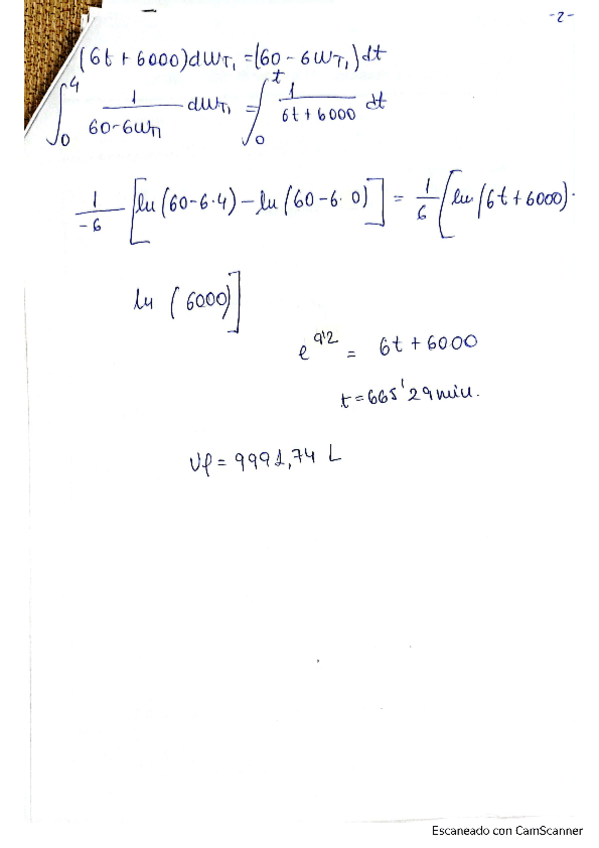 -2-
(6t + 6000)dwT₁ = (60 - 6wT₁)dt
∫₀⁴ 1/(60-6wT₁) dwT₁ = ∫₀ᵗ 1/(6t + 6000) dt
1/-6 [ln(60-6·4) - ln(60-6·0)] = 1/6 [ln(6t + 6000) ·
ln (6000)]
e^9'2 = 6t + 6000
t = 665'29 min.
Vf = 9991,74 L
Escaneado con CamScanner